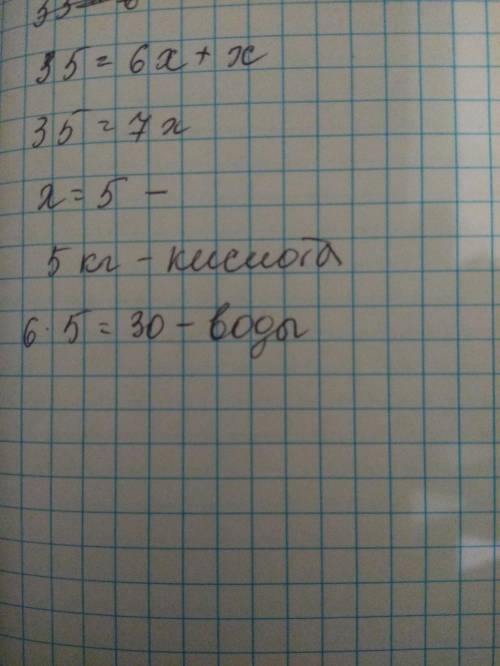 35 = 6x + x
35 = 7x
x = 5 –
5 кг – кислота
6 · 5 = 30 – воды